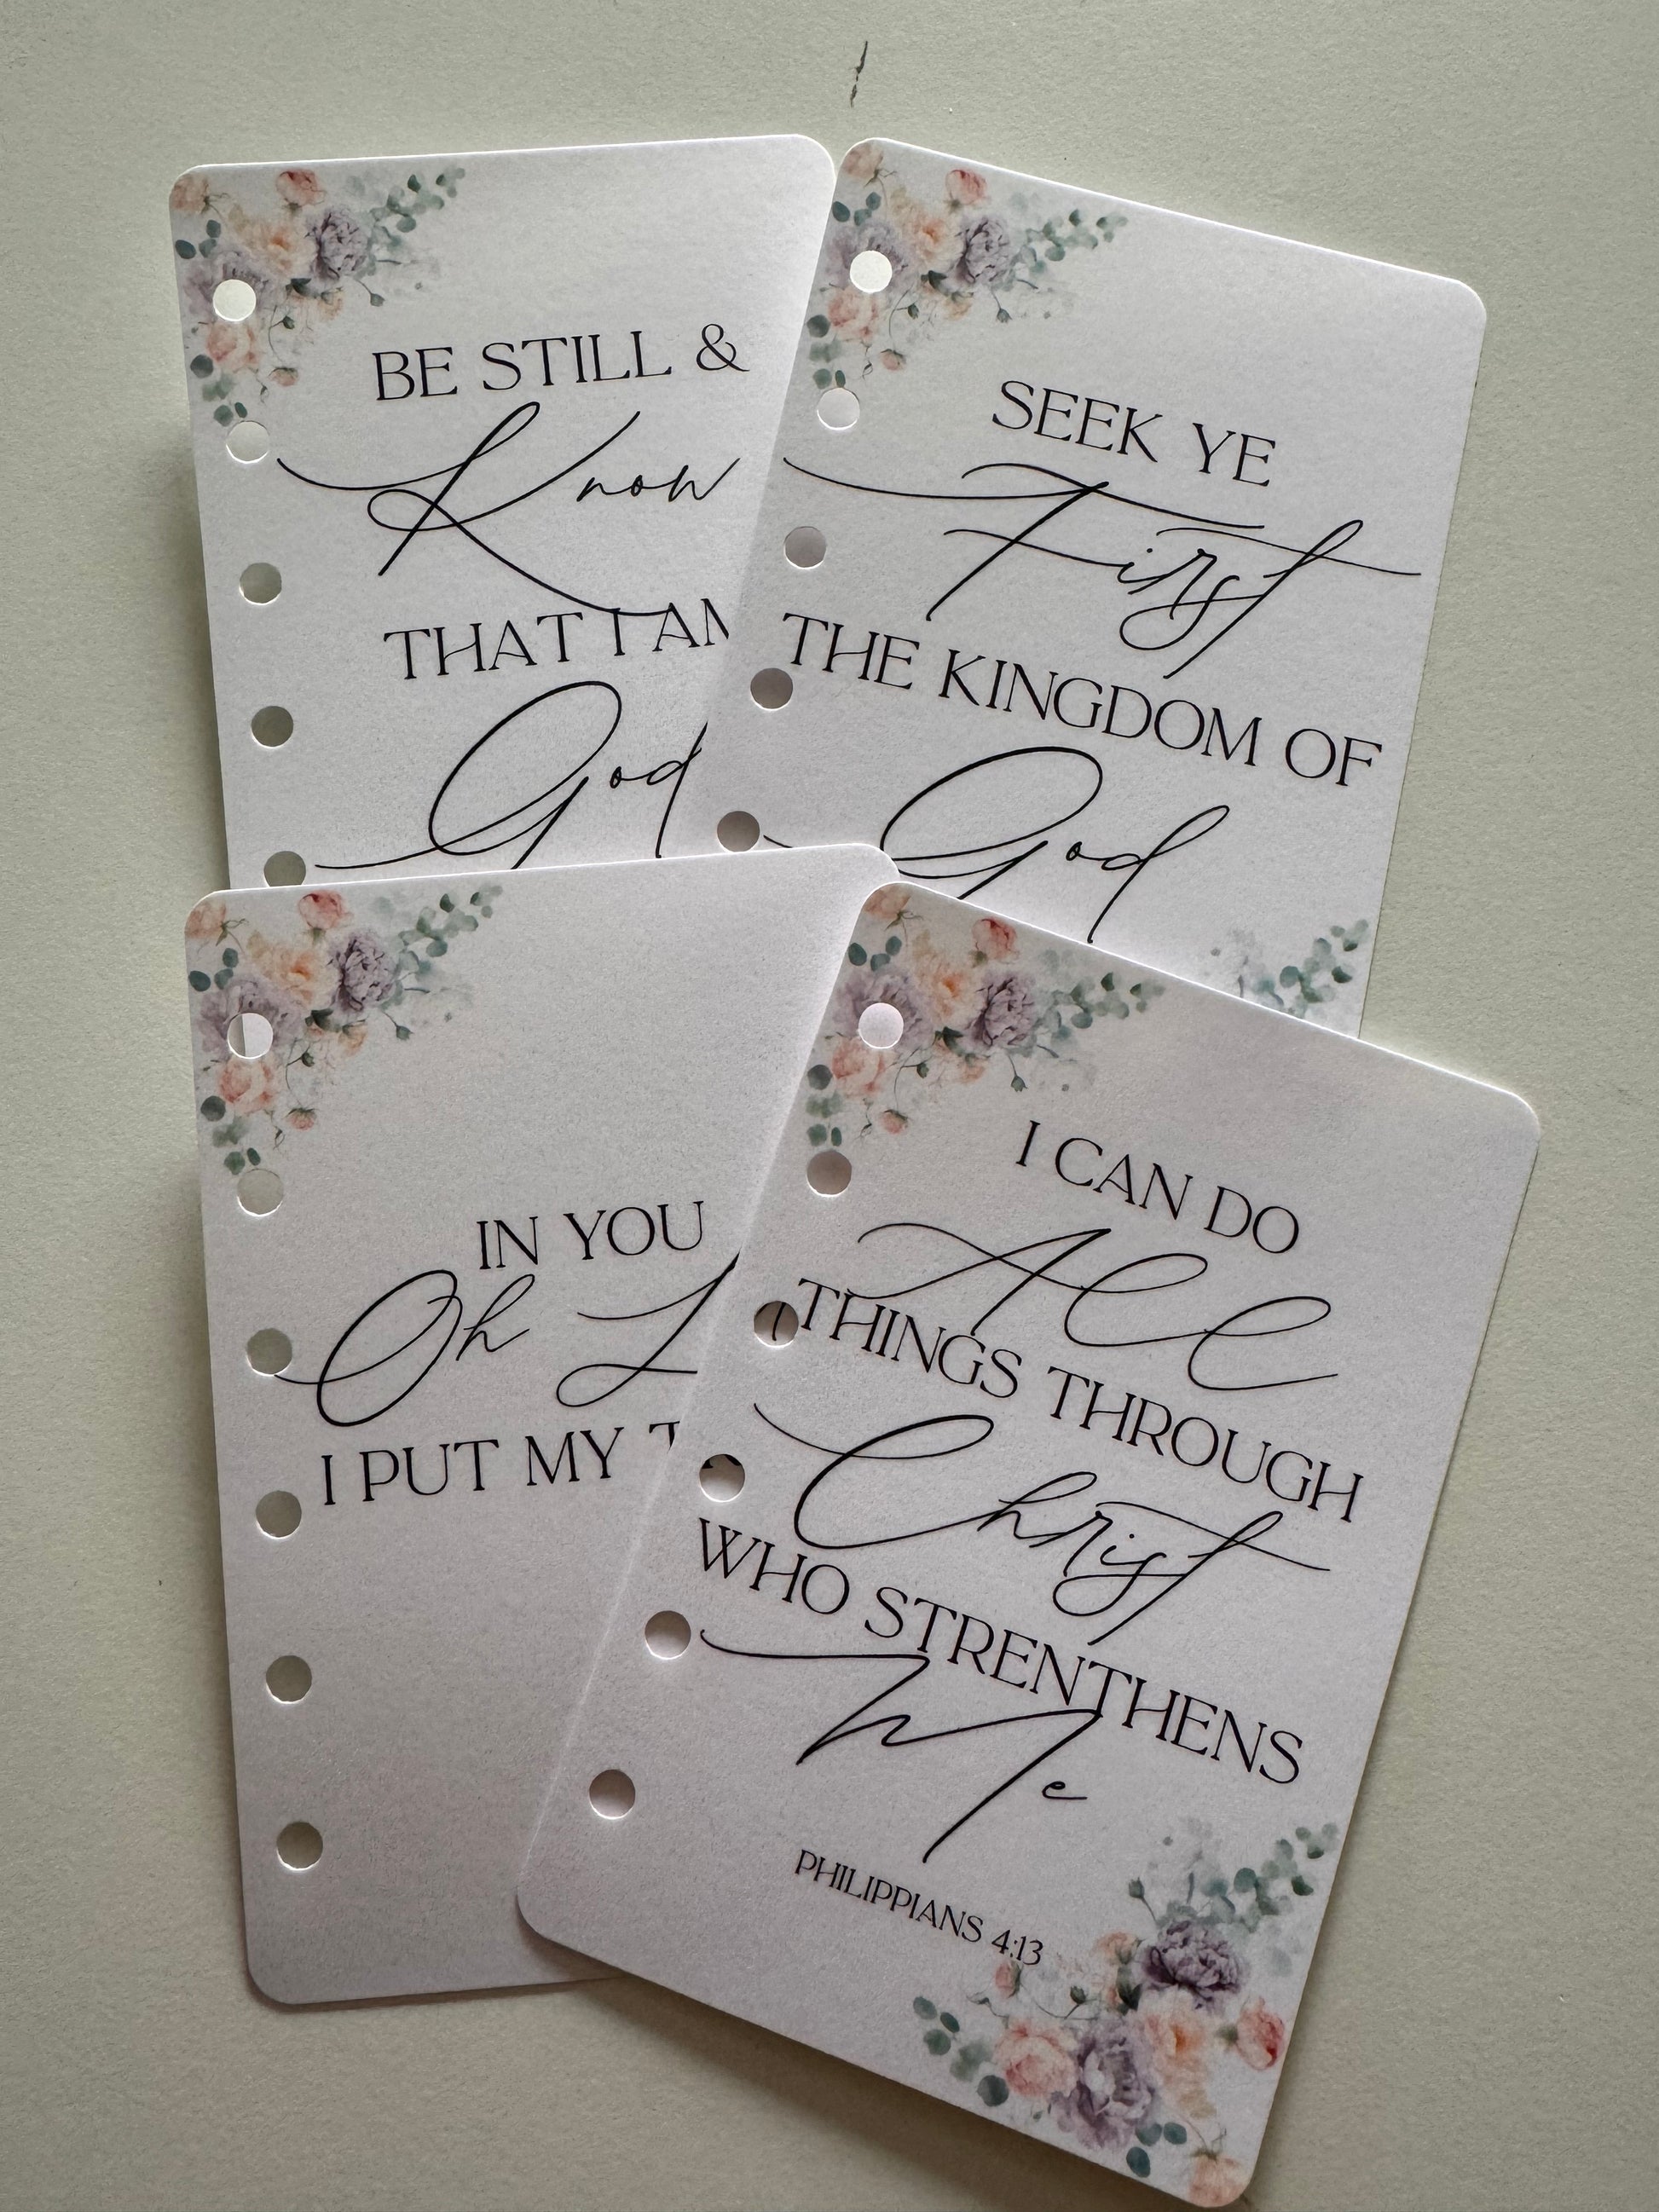 BE STILL &
Know
THAT I AM
God
SEEK YE
First
THE KINGDOM OF
God
IN YOU
Oh L
I PUT MY T
I CAN DO
All
THINGS THROUGH
Christ
WHO STRENTHENS
Me
PHILIPPIANS 4:13